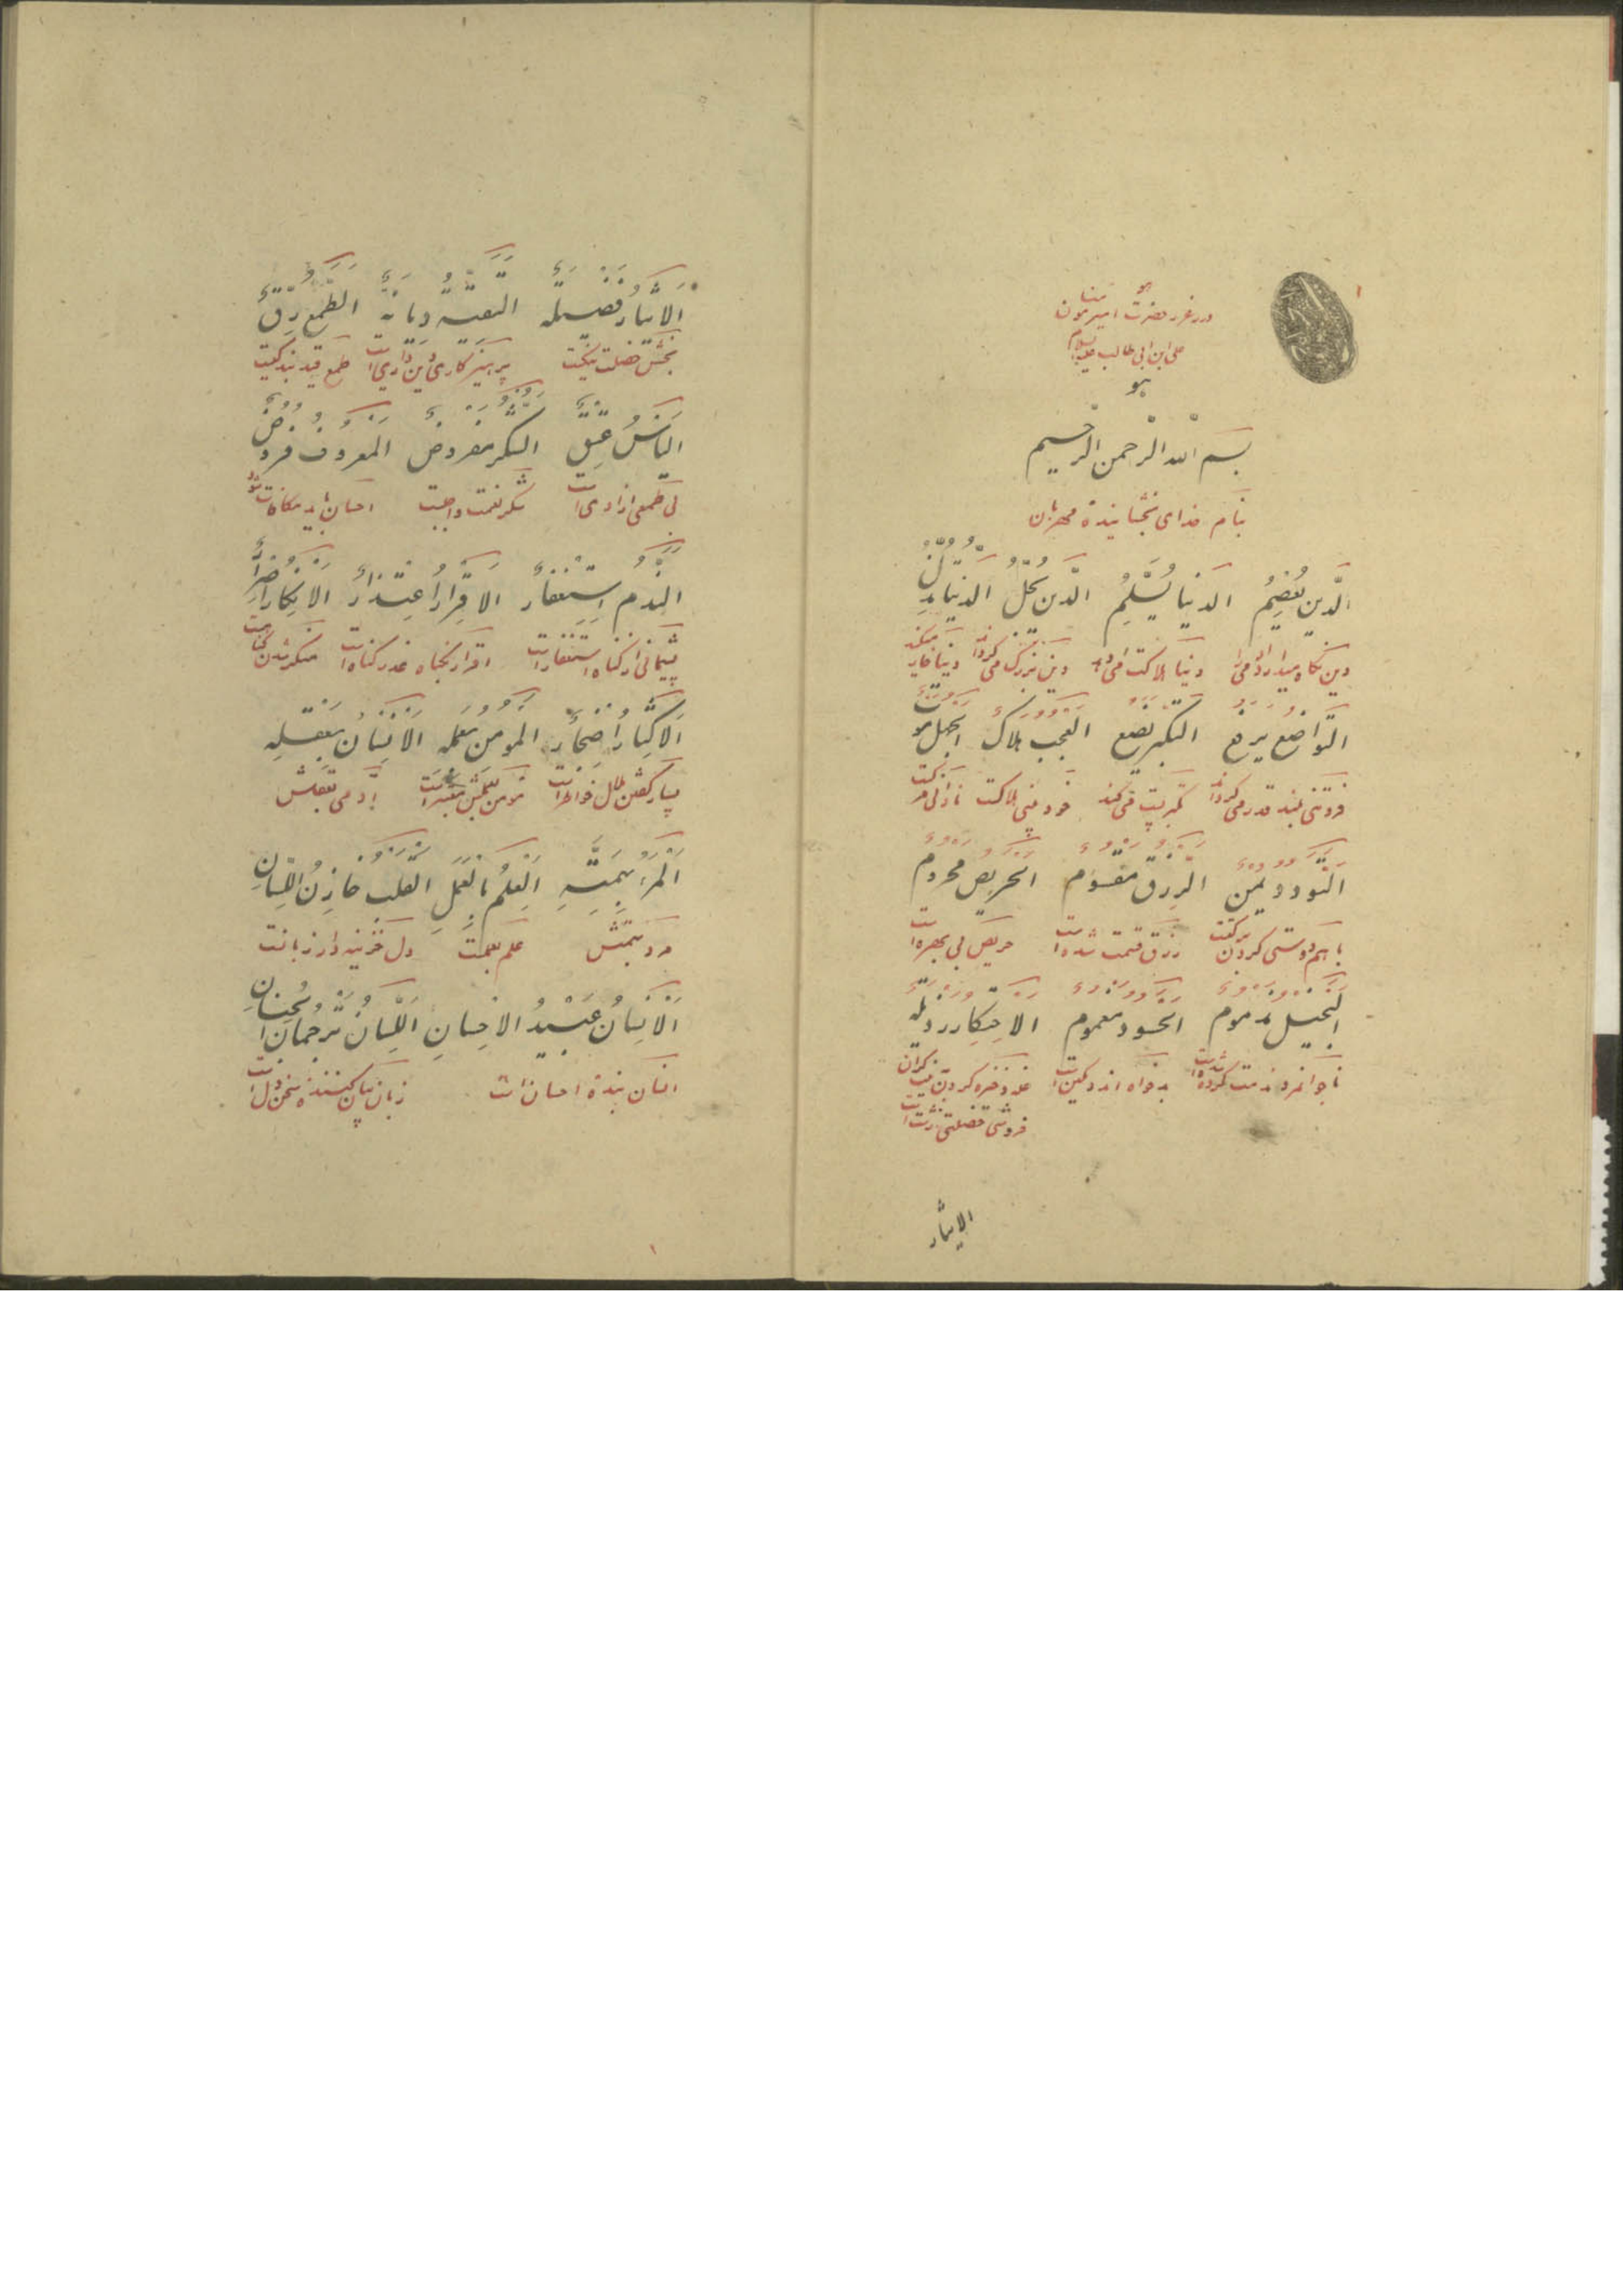 هو
درر غرر حضرت امیرمومنان
علی ابن ابی طالب علیه السلام
هو
بسم الله الرّحمن الرّحیم
بنام خدای بخشاینده مهربان
الدّین یَعصِمُ الدنیا تُسلِمُ الدّین یُجِلُّ الدّنیا تُذِلُّ
دین نگاه میدارد آدمی را دنیا بهلاکت می دهد دین بزرگ می گرداند دنیا خار میکند
التّواضع یرفع التکبر یضع العجب هلاک الجهل موت
فروتنی بلند قدر می گرداند تکبر پست می کند خود بینی هلاکت نادانی مرکست
التّودد یمن الرّزق مقسوم الحریص محروم
با هم دوستی کردن برکتست رزق قسمت شده است حریص بی بهره است
البخیل مذموم الحسود مغموم الاحتکار رذیله
ناجوانمرد مذمت کرده شده است بدخواه اندوهکین است غله ذخیره کردن بنیت کران
فروشی خصلتی زشت است
الایثار
الایثار فضیلة التقیة دیانة الطّمع رِقّ
بخشش خصلت نیکیست پرهیزکاری دین داری است طمع قید بندکیست
الیأسُ عِتقٌ الشکر مفروضٌ المعروف فروضٌ
بی طمعی ازادی است شکر نعمت واجبست احسان باید مکافات شود
النّدم استغفارٌ الاقرارُ اعتذارٌ الانکار اصرارٌ
پشیمانی از کناه استغفار است اقرار بکناه عذر کناه است منکر شدن
الاکثار اضجار المومن بعمله الانسان بعقله
بسیار کفتن ملال خواطر است مومن بعملش معتبر است آدمی بعقلش
المرء بهمّتهِ العِلمُ بالعَملِ القلب خازِنُ اللّسانِ
مرد بهمتش علم بعملست دل خزینه دار زبانست
الانسانُ عَبیدُ الاحسانِ اللّسانُ تَرجُمانُ الجنانِ
انسان بنده احسان است زبان بیان کننده سخن دل است